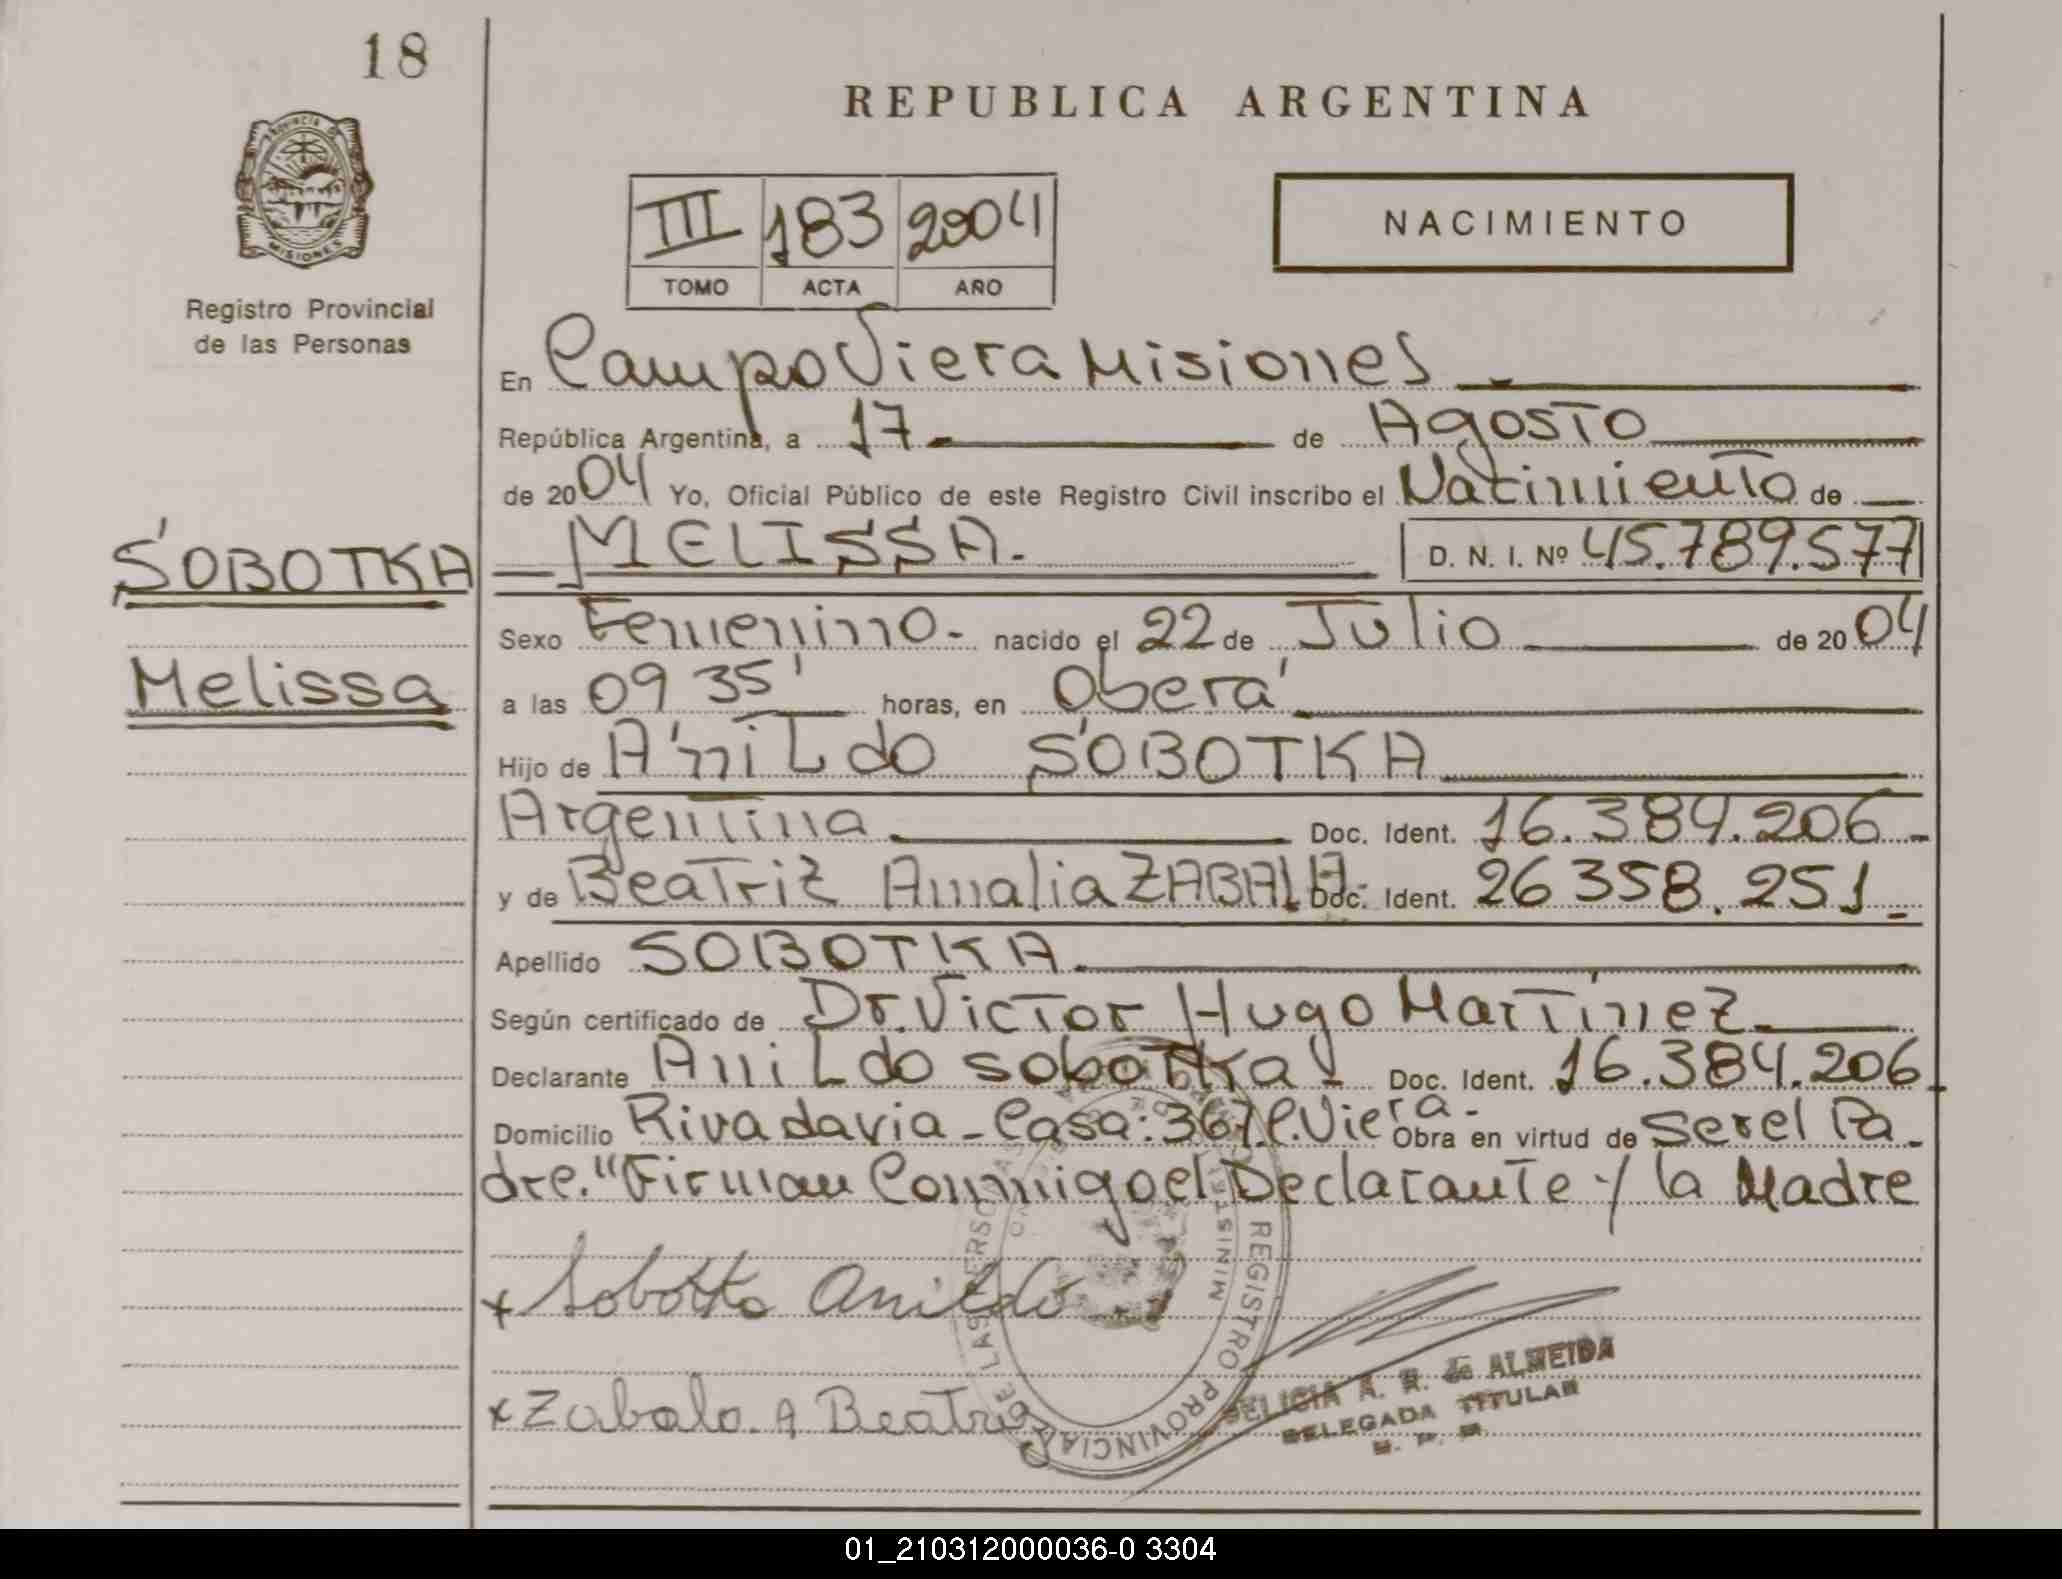 18
REPUBLICA ARGENTINA
PROVINCIA DE
MISIONES
Registro Provincial
de las Personas
III 183 2004
TOMO ACTA AÑO
NACIMIENTO
En Campo Viera Misiones
República Argentina, a 17 de Agosto
de 2004 Yo, Oficial Público de este Registro Civil inscribo el Nacimiento de
SOBOTKA
Melissa
MELISSA. D. N. I. Nº 45.789.577
Sexo Femenino- nacido el 22 de Julio de 2004
a las 09 35' horas, en Oberá
Hijo de Anildo SOBOTKA
Argentina Doc. Ident. 16.384.206-
y de Beatriz Amalia ZABALA- Doc. Ident. 26 358.251-
Apellido SOBOTKA
Según certificado de Dr. Victor Hugo Martinez
Declarante Anildo Sobotka- Doc. Ident. 16.384.206-
Domicilio Rivadavia - Casa: 367. C. Viera- Obra en virtud de ser el Pa-
dre. "Firman Conmigo el Declarante y la Madre
x Sobotka Anildo
x Zabala A Beatriz
REGISTRO PROVINCIAL DE LAS PERSONAS
FELICIA A. R. de ALMEIDA
DELEGADA TITULAR
01_210312000036-0 3304